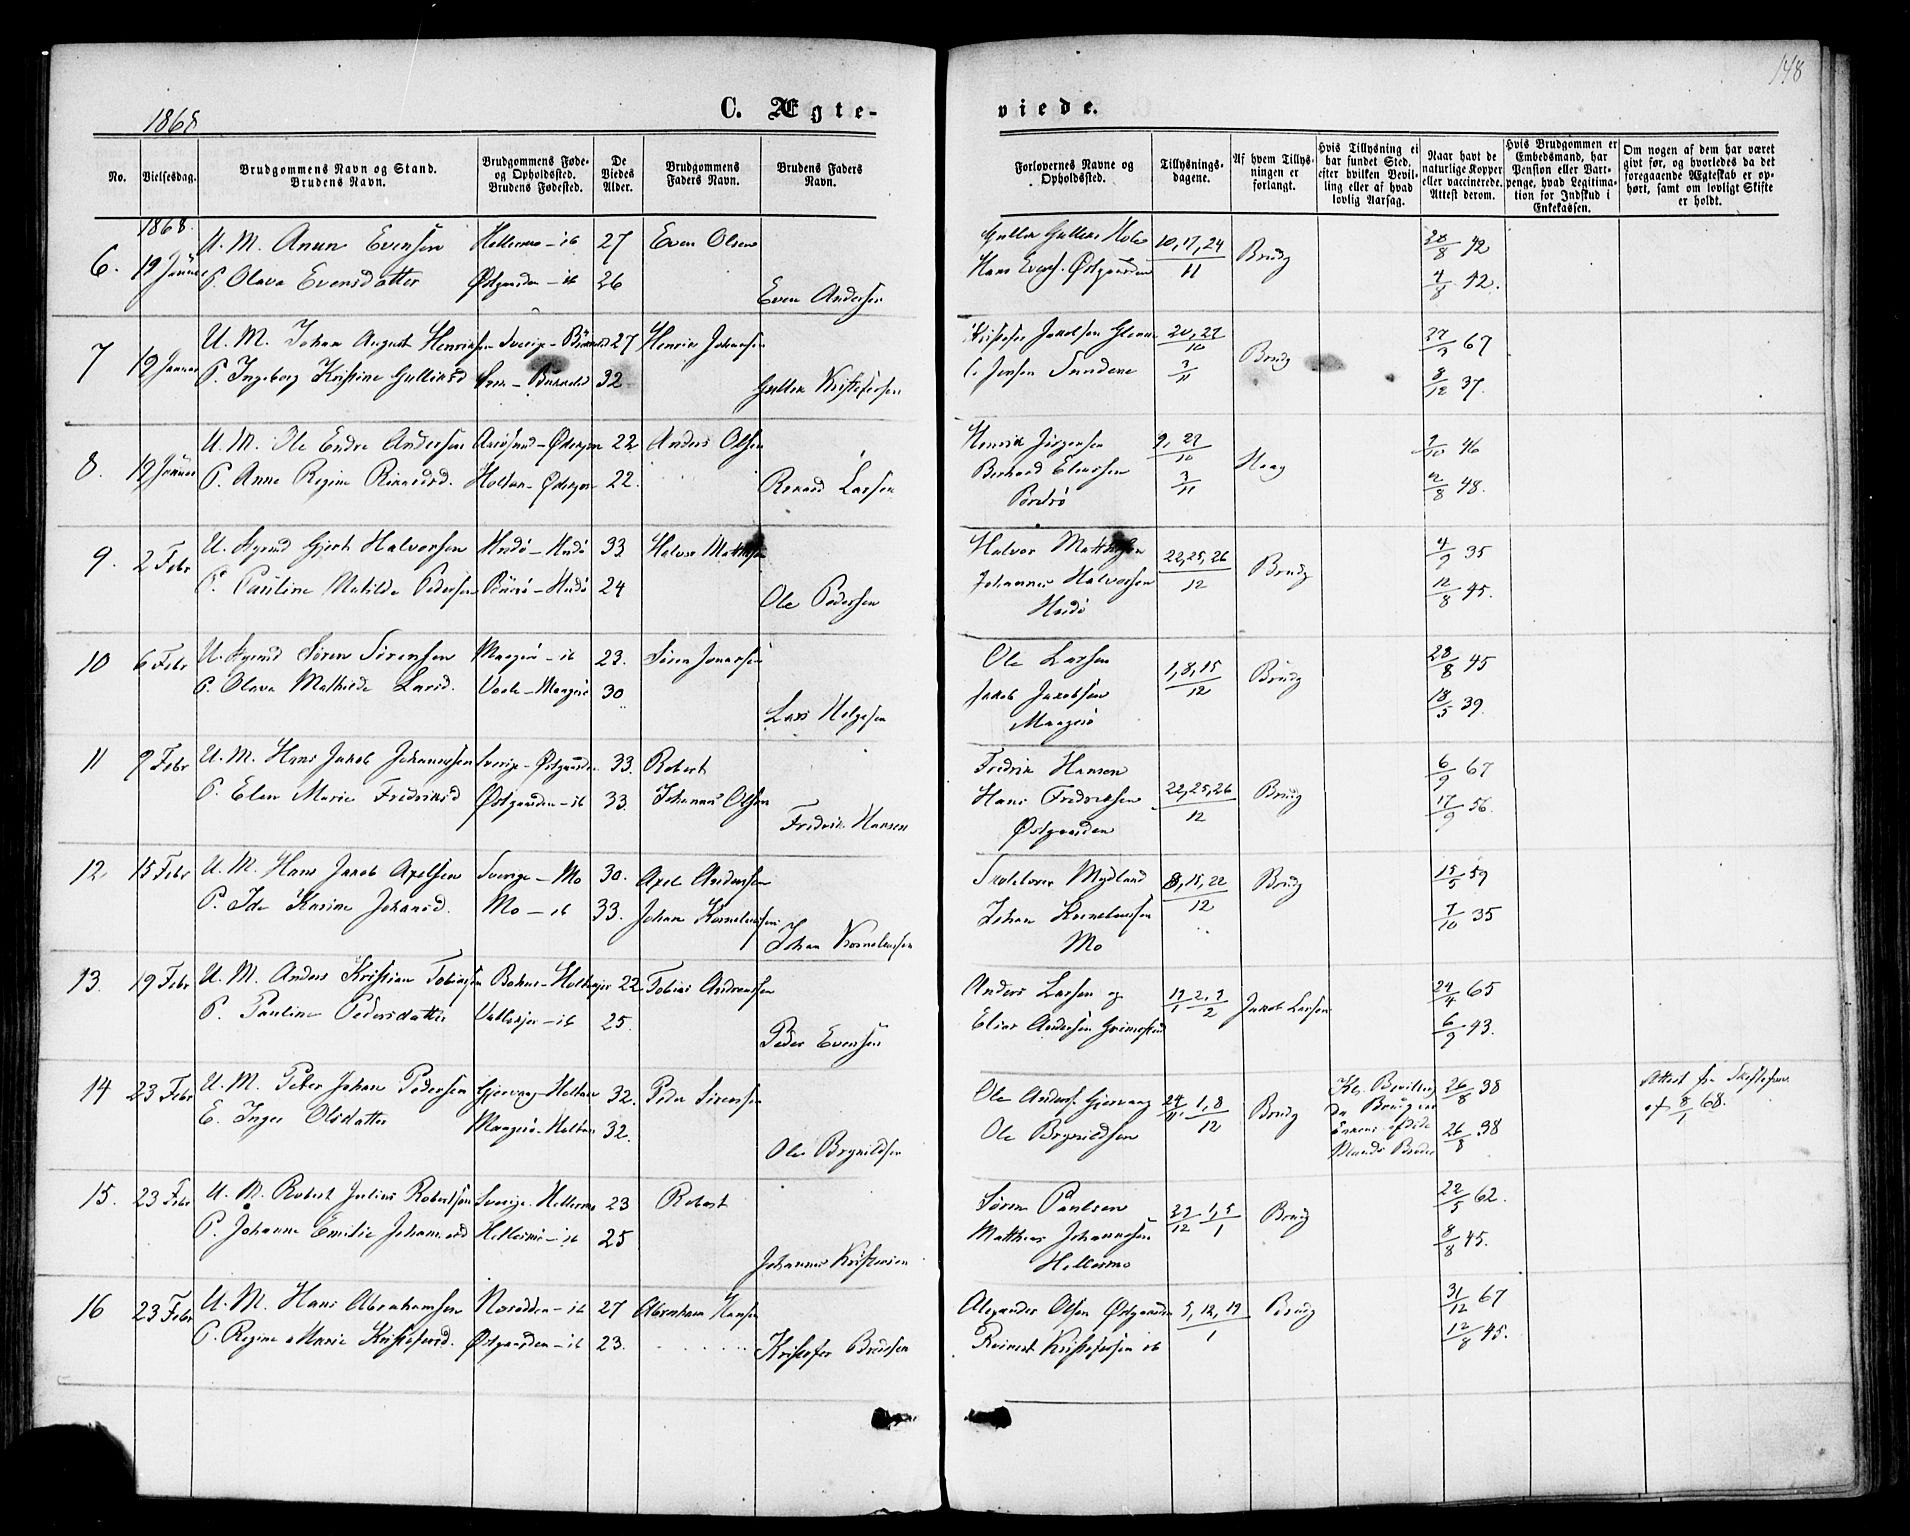 148
1868
C. Ægte-
viede.
No.
Vielsesdag.
Brudgommens Navn og Stand.
Brudens Navn.
Brudgommens Føde-
og Opholdssted.
Brudens Fødested.
De
Viedes
Alder.
Brudgommens
Faders Navn.
Brudens Faders
Navn.
Forlovernes Navne og
Opholdssted.
Tillysnings-
dagene.
Af hvem Tillys-
ningen er
forlangt.
Hvis Tillysning ei
har fundet Sted,
efter hvilken Bevil-
ling eller af hvad
lovlig Aarsag.
Naar havt de
naturlige Kopper
eller vaccinerede.
Attest derom.
Hvis Brudgommen er
Embedsmand, har
Pension eller Vart-
penge, hvad Legitima-
tion for Indskud i
Enkekassen.
Om nogen af dem har været
givt før, og hvorledes da det
foregaaende Ægteskab er op-
hørt, samt om lovligt Skifte
er holdt.
1868.
6. 19 Januar U. M. Anun Evensen Hellesmo - ib 27 Even Olsen
P. Olava Evensdatter Østgaarden - ib 26
Even Andersen
Hans Evens. Østgaarden 10, 17, 24/11 Brudg
28/8 42
4/8 42.
7 19 Januar U. M. Johan August Henriksen Sverig 27 Henrik Johansen
P. Ingeborg Kristine Gulliksd 32
Gullik Kristofersen
Kristofer Jakobsen 20, 27/10 3/11 Brudg
Jensen Sundene
27/3 67
8/12 37.
8. 19 Januar U. M. Ole Endre Andersen 22 Anders Olsen
P. Anne Regine Rinardsd. Holtan 22.
Renard Larsen
Henrik Jørgensen 9, 27/10 3/11
Berhard Eliassen
9/10 46
2/8 48.
9. 2 Febr U. Styrmd Gjert Halvorsen Husø - Husø 33 Halvor Mathisen
P. Pauline Matilde Pedersen 24
Ole Pedersen
Halvor Mathisen 22, 25, 26/12 Brudg
Johannes Halvorsen
Husø
4/9 35
12/8 45.
10 6 Febr U. Styrmd Søren Sørensen Maagerø - ib 23. Søren Jonassen
P. Olava Mathilde Larsd. Maagerø 30
Lars Helgesen
Ole Larsen 1, 8, 15/12 Brudg
Jakob Jakobsen
Maagerø
28/8 45
18/5 39.
11 9 Febr U. M. Hans Jakob Johannesen Sverig - Østgaarden 33. Robert
P. Elen Marie Fredriksd Østgaarden - ib 33. Johannes Olsen
Fredrik Hansen
Fredrik Hansen 22, 25, 26/12 Brudg
Hans Fredriksen
Østgaarden
6/9 67
17/9 56.
12. 15 Febr U. M. Hans Jakob Axelsen Sverige - Mo 30. Axel Andersen
P. Ida Karine Johansd. Mo - ib 33. Johan Kornelius­sen
Johan Korneliussen
Mydland 8, 15, 22/12 Brudg
Johan Korneliussen
Mo
15/5 59
7/10 35
13. 19 Febr U. M. Anders Kristian Tobiassen 22 Tobias Andreassen
P. Pauline Pedersdatter 25.
Peder Evensen
Anders Larsen og 19/1 2, 9/2 Jakob Larsen
Elias Andersen Grimestad
24/4 65
6/9 43.
14 23 Febr U. M. Peter Johan Pedersen Gjervaag - Holtan 32. Peder Sørensen
E. Inger Olsdatter Maagerø - Holtan 32.
Ole Brynildsen
Ole Anders. Gjervaag 24/11 1, 8/12 Brudg
Ole Brynildsen
26/8 38
26/8 38
Attest fra Skifteforv.
af 8/1 68.
15. 23 Febr U. M. Robert Julius Robertsen Sverige - Hellesmo 23 Robert
P. Johanne Emilie Johannesd Hellesmo - ib 25
Johannes Kristensen
Søren Paulsen 29/12 1, 5/1 Brudg
Mathias Johannesen
Hellesmo
22/5 62.
8/8 45.
16 23 Febr U. M. Hans Abrahamsen Nesodden - ib 27 Abraham Hansen
P. Regine Marie Kristofersd. Østgaarden - ib 23.
Kristofer
Alexander Olsen Østgaarden 5, 12, 19/1 Brudg
Reinert Kristofersen ib
31/12 67
12/8 45.